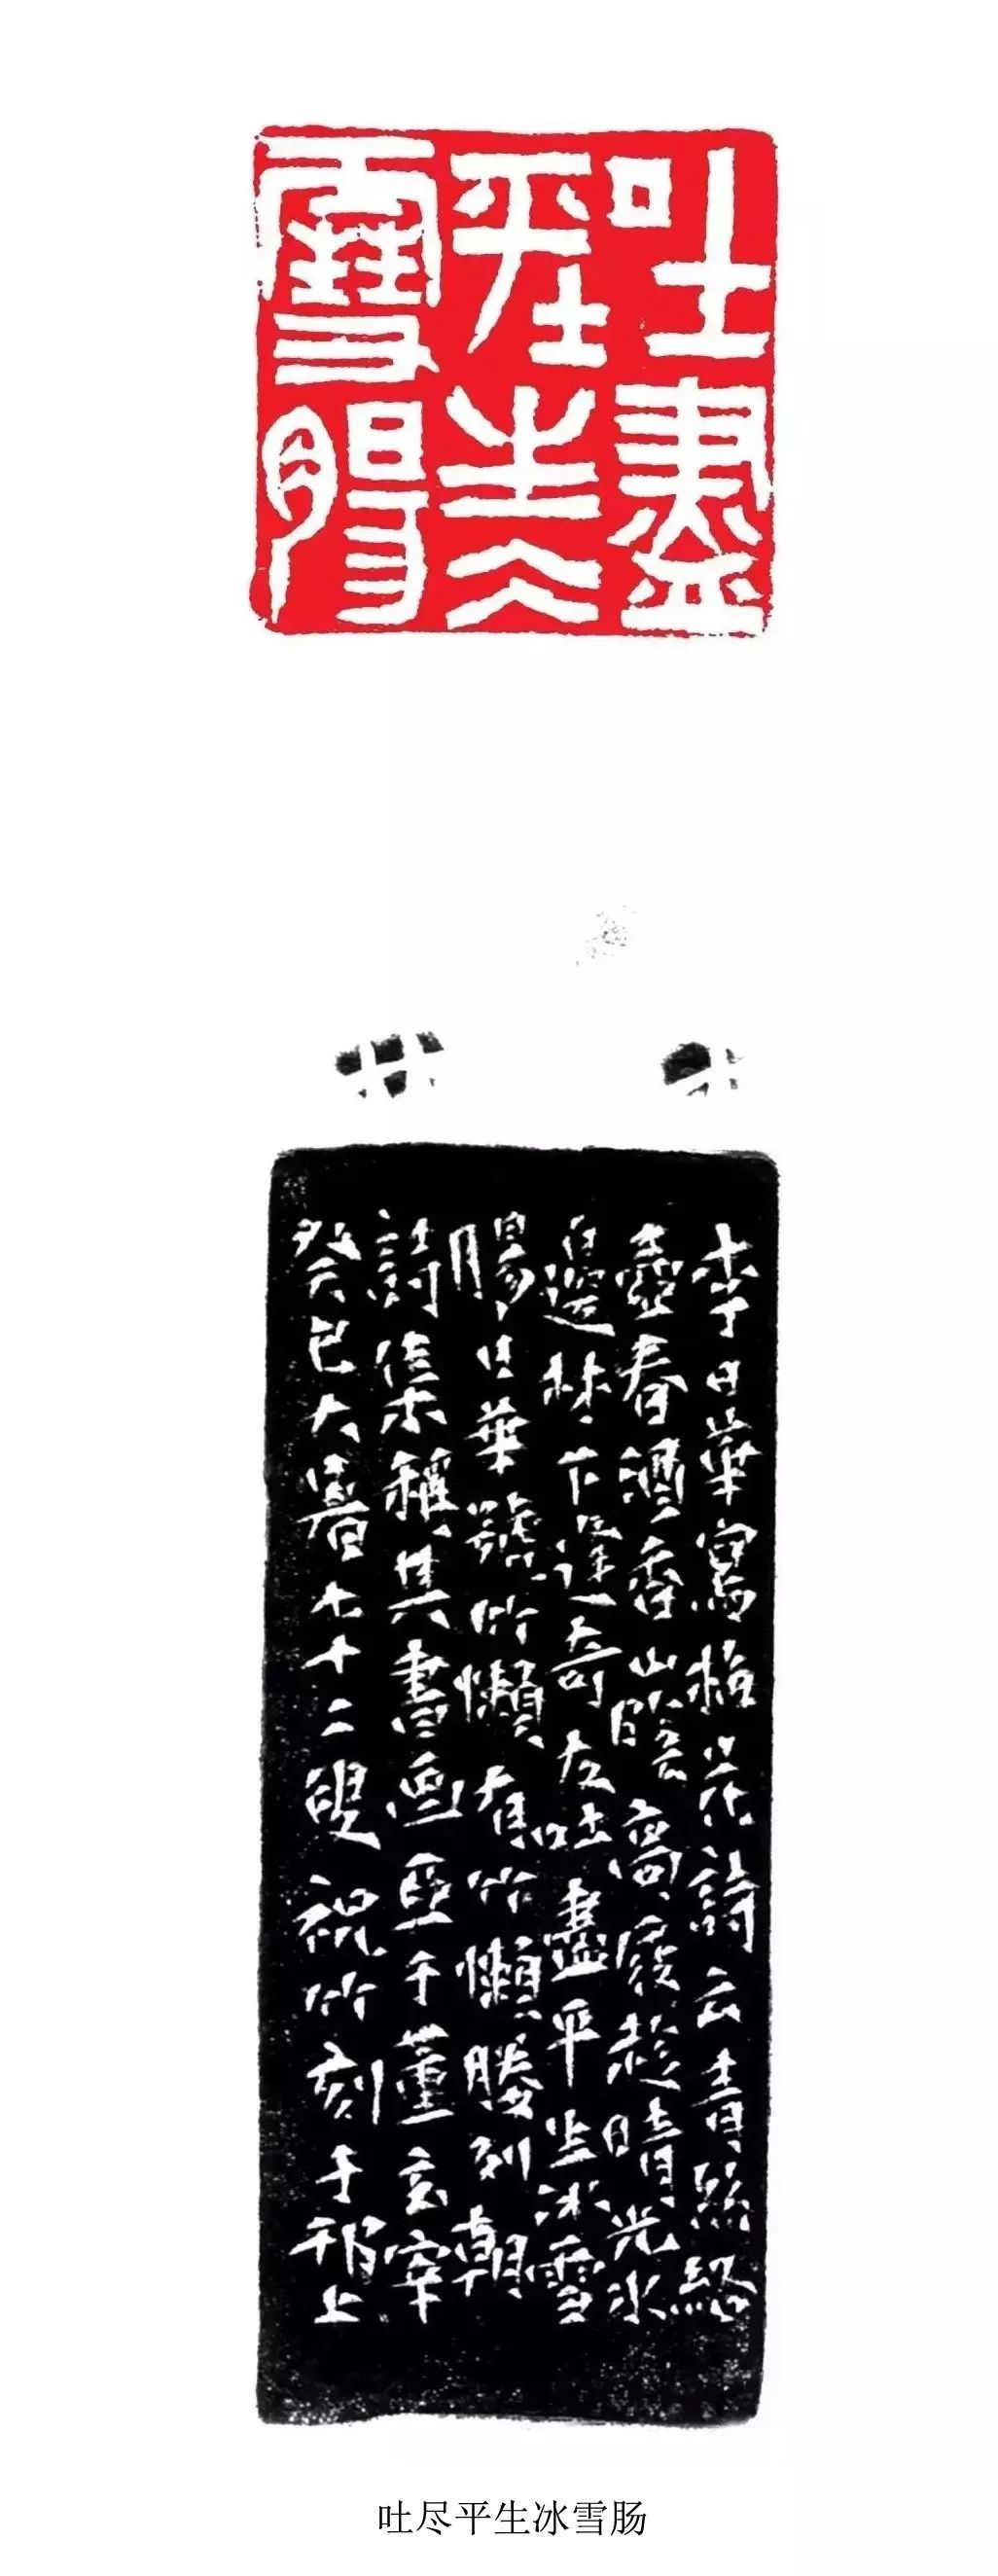 吐盡
平生仌
雪腸
李日華寫梅花詩云青絲絡
壺春酒香山陰高屐趁晴光水
邊林下逢奇友吐盡平生冰雪
腸日華號竹懶有竹懶媵列朝
詩集稱其書画亞于董玄宰
癸巳大暑七十二叟祝竹刻于邗上
吐尽平生冰雪肠